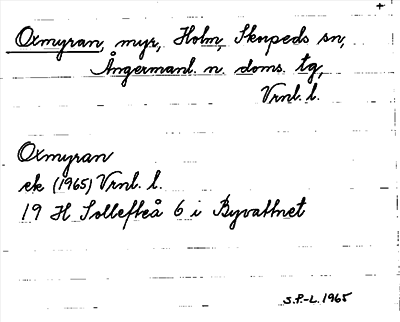 Oxmyran, myr, Holm, Skorpeds sn,
Ångermanl. n. doms. tg,
Vrnl. l.
Oxmyran
ek (1965) Vrnl. l.
19 H Sollefteå 6 i Byvattnet
S.P.-L. 1965